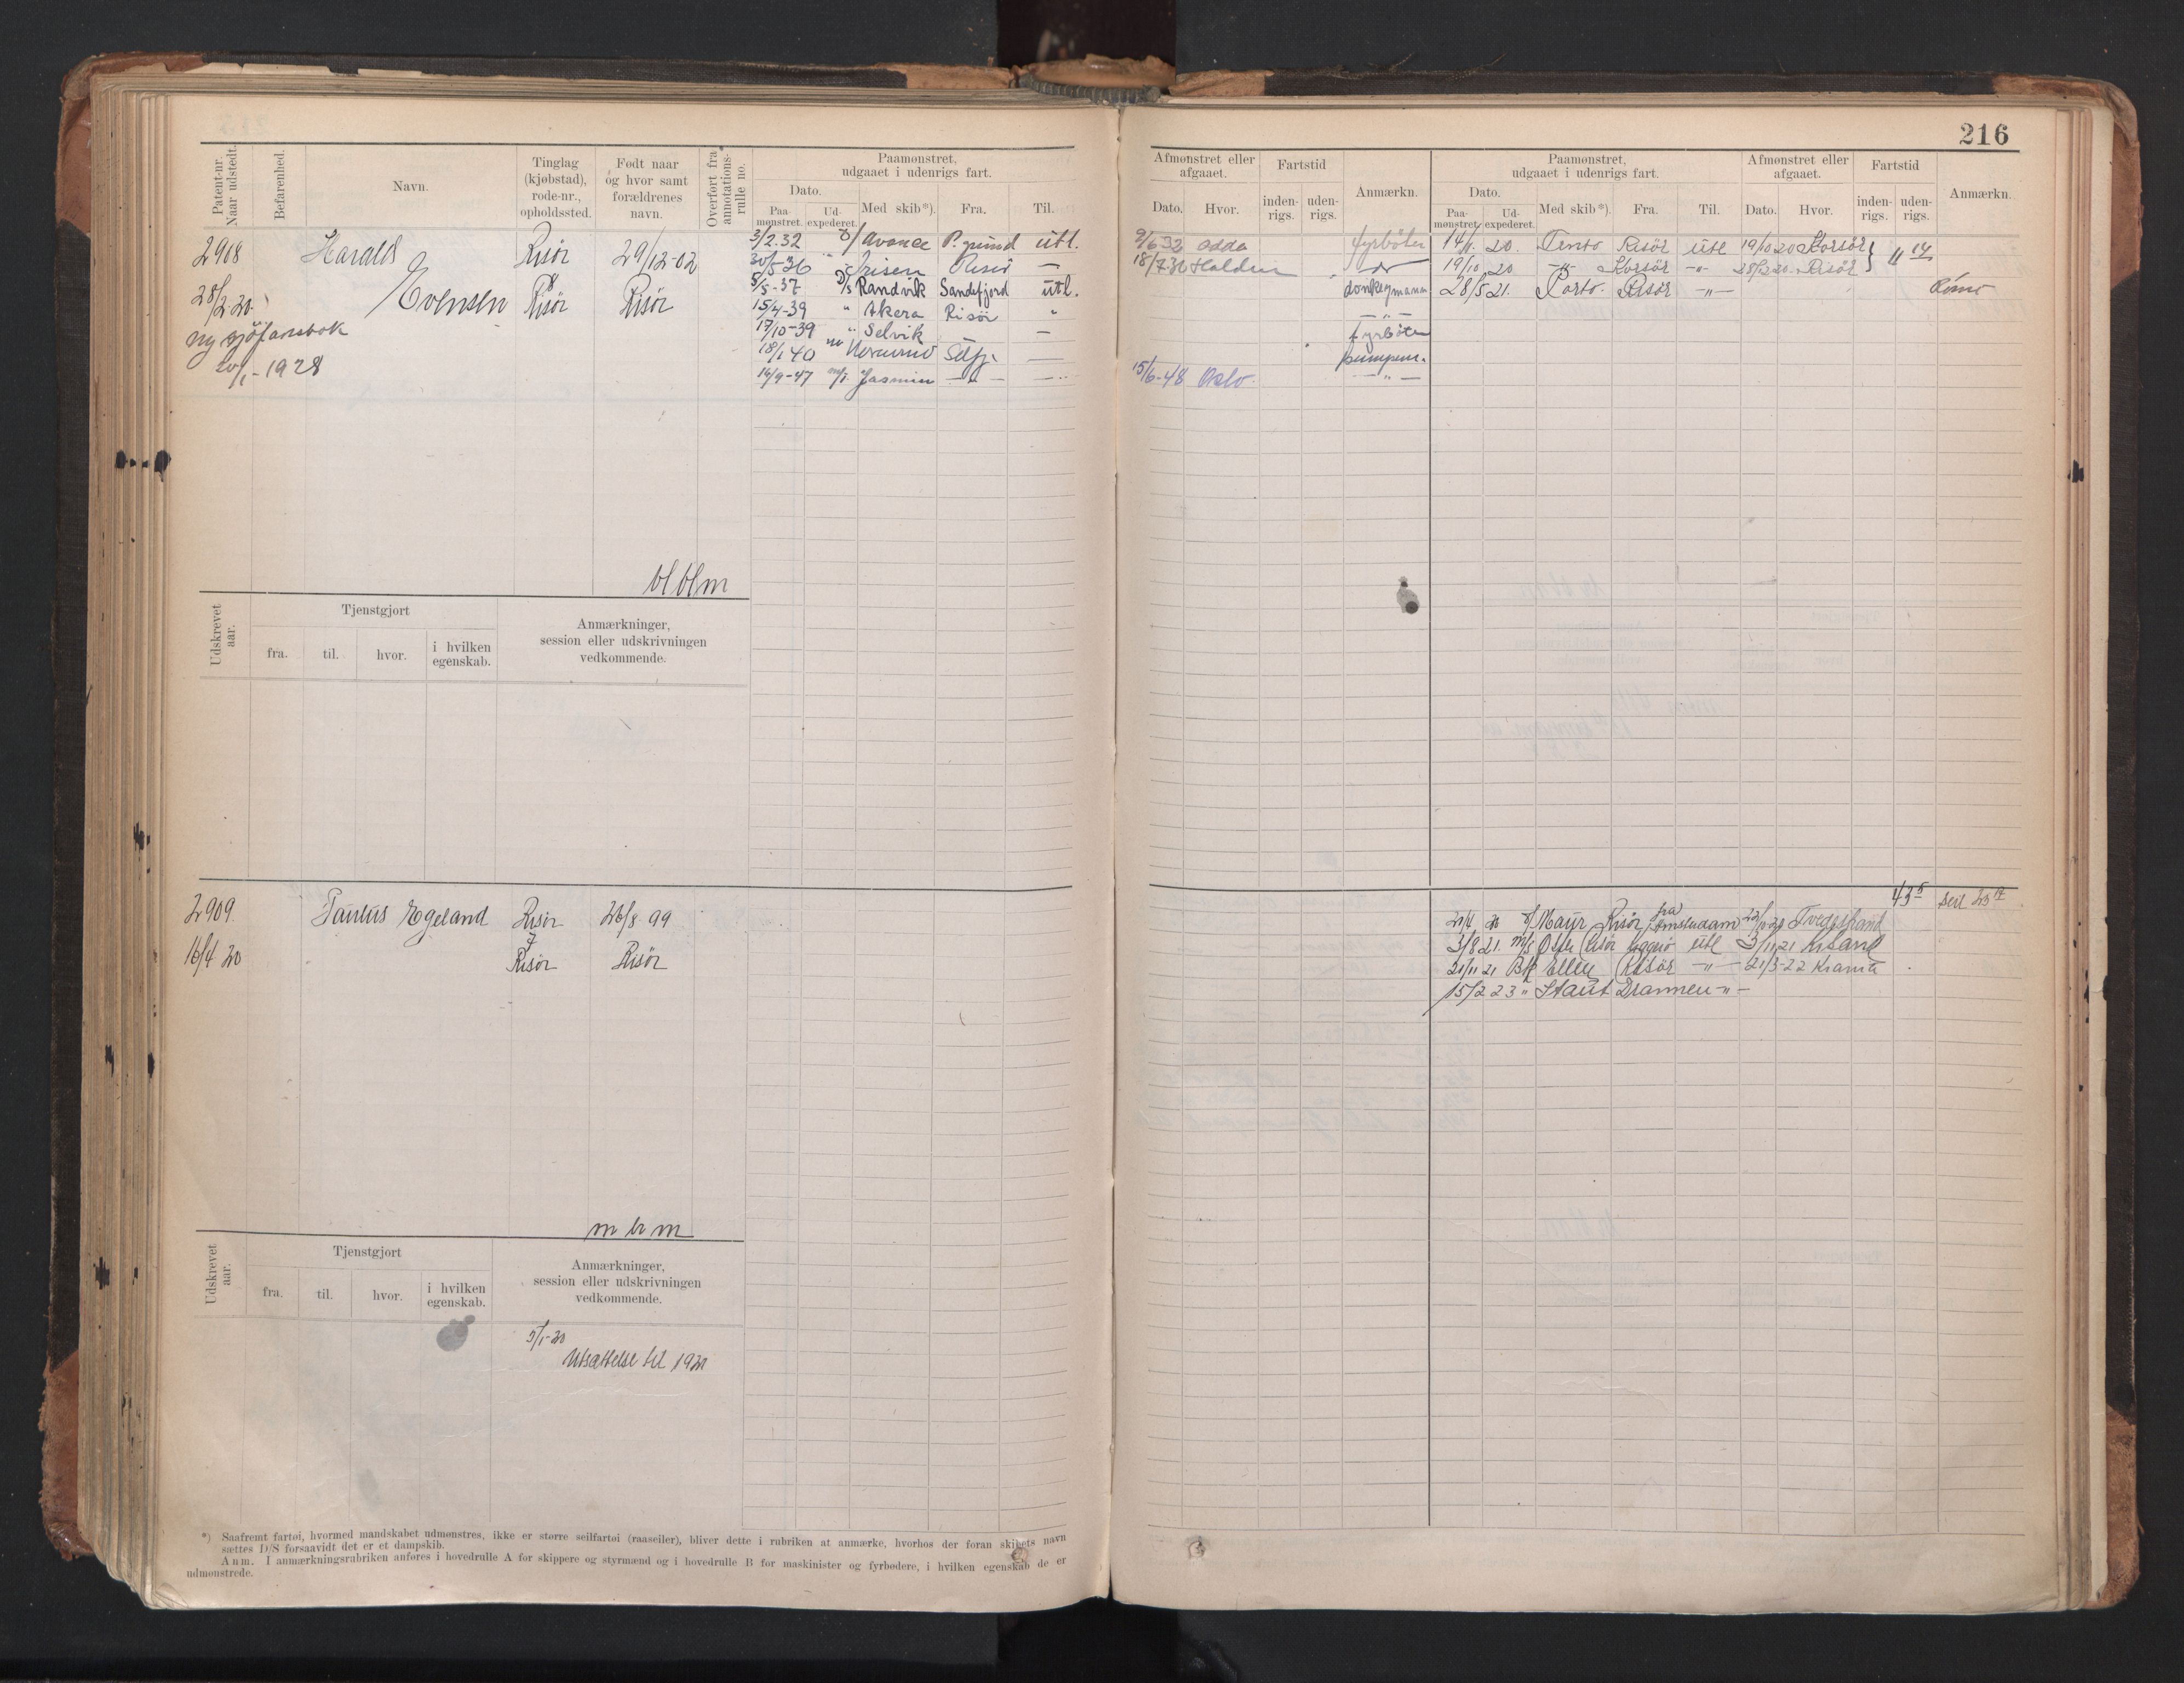 216
Patent-nr. Naar udstedt. Befarenhed. Navn. Tinglag (kjøbstad), rode-nr., opholdssted. Født naar og hvor samt forældrenes navn. Overført fra annotations-rulle no. Paamønstret, udgaaet i udenrigs fart. Dato. Paa-mønstret. Ud-expederet. Med skib*). Fra. Til.
Afmønstret eller afgaaet. Dato. Hvor. Fartstid inden-rigs. uden-rigs. Anmærkn. Paamønstret, udgaaet i udenrigs fart. Dato. Paa-mønstret. Ud-expederet. Med skib*). Fra. Til. Afmønstret eller afgaaet. Dato. Hvor. Fartstid inden-rigs. uden-rigs. Anmærkn.
2908 Harald Evensen Risør 29/12-02
28/2 20. Risør Risør
ny sjöfartsbok
20/1-1928
3/2.32 Avance P.grund utl.
30/5-36 Irisen Risør —
5/5-37 D/s Randvik Sandefjord utl.
15/4-39 " Akera Risör "
17/10-39 " Selvik —
18/1 40 —
16/9-47 m/t. Jasmin — " — —
9/6 32 Odda fyrböter
18/7 36 Halden
donkeymann
— " —
fyrböter
pumpem.
15/6-48 Oslo. — " —
14/1. 20. Risör utl 19/10 20 Korsör
19/10 20 — " — Korsör — " — 28/12 20. Risör } 11 14
28/5 21. Porto. Risör — " —
Udskrevet aar. Tjenstgjort fra. til. hvor. i hvilken egenskab. Anmærkninger, session eller udskrivningen vedkommende.
2909 Paulus Egeland Risør 26/8 99
16/4 20 7 Risør Risør
43 5 Seil 25 17
21/4 20 Mayr Risör fra Amsterdam 22/10 20 Tvedestrand
3/8 21. m/s Risör utl 3/11 21 Krsand
21/11 21 Ellen Risör — " — 21/3-22
15/2 23 " Staut Drammen — " —
m b m
Udskrevet aar. Tjenstgjort fra. til. hvor. i hvilken egenskab. Anmærkninger, session eller udskrivningen vedkommende.
5/1-20
Utsættelse til 1921
*) Saafremt fartøi, hvormed mandskabet udmønstres, ikke er større seilfartøi (raaseiler), bliver dette i rubriken at anmærke, hvorhos der foran skibets navn
sættes D/S forsaavidt det er et dampskib.
Anm. I anmærkningsrubriken anføres i hovedrulle A for skippere og styrmænd og i hovedrulle B for maskinister og fyrbødere, i hvilken egenskab de er
udmønstrede.